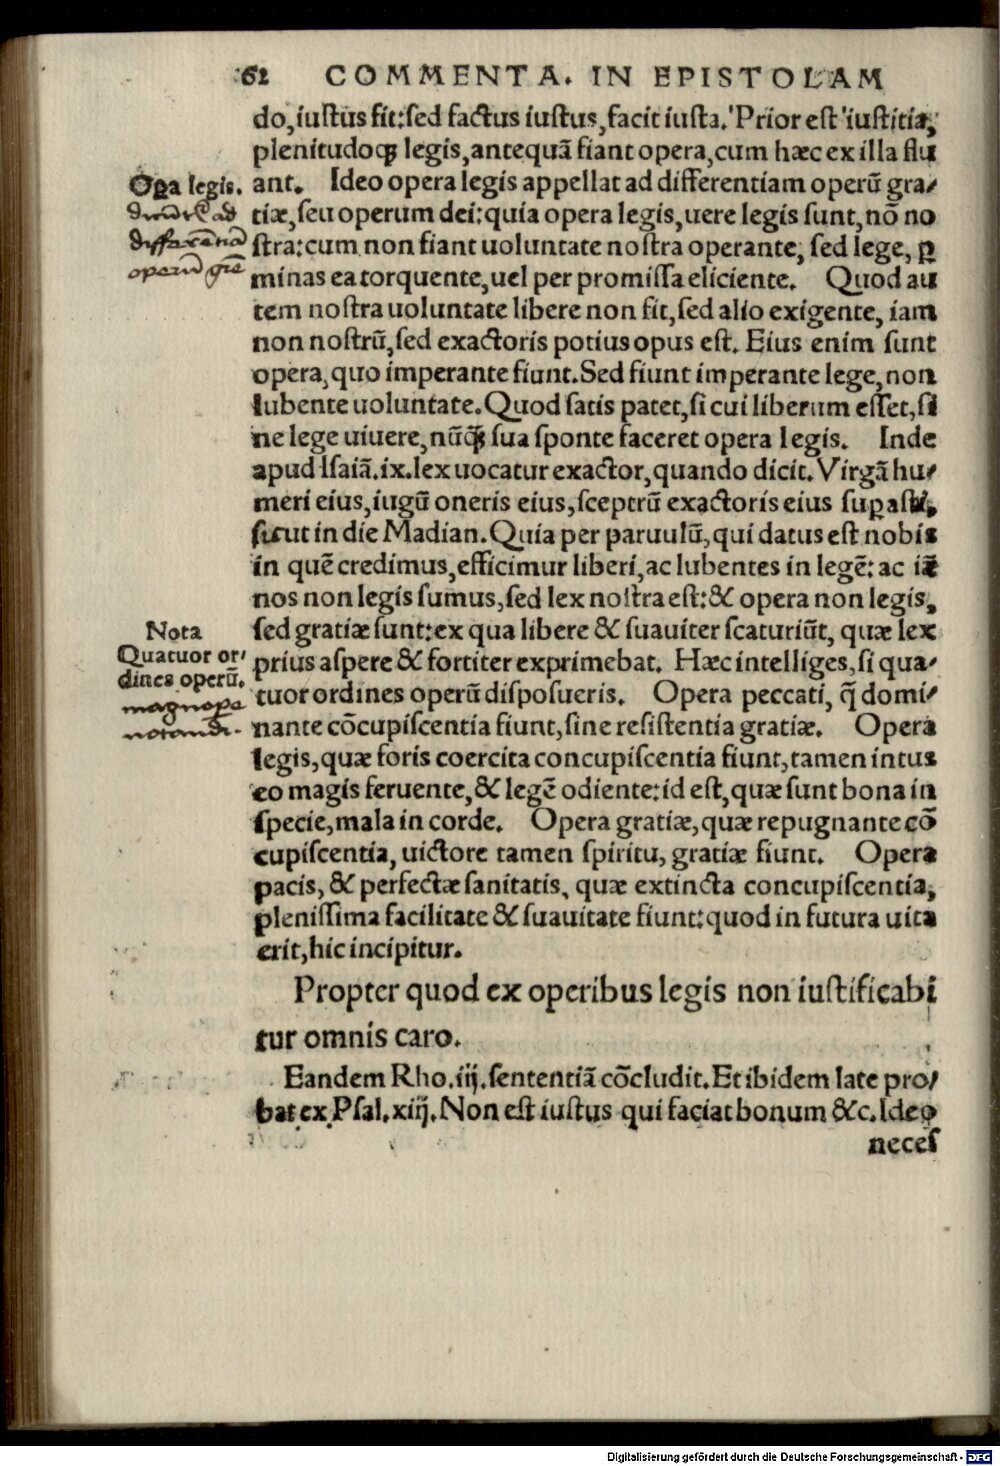 62 COMMENTA. IN EPISTOLAM
do, iuſtus fit: ſed factus iuſtus, facit iuſta. Prior eſt iuſtitia,
plenitudoqꝫ legis, antequã fiant opera, cum hæc ex illa flu
ant. Ideo opera legis appellat ad differentiam operũ gra/
tiæ, ſeu operum dei: quia opera legis, uere legis ſunt, nõ no
ſtra: cum non fiant uoluntate noſtra operante, ſed lege, ꝑ
minas ea torquente, uel per promiſſa eliciente. Quod au
tem noſtra uoluntate libere non fit, ſed alio exigente, iam
non noſtrũ, ſed exactoris potius opus eſt. Eius enim ſunt
opera, quo imperante fiunt. Sed fiunt imperante lege, non
lubente uoluntate. Quod ſatis patet, ſi cui liberum eſſet, ſi
ne lege uiuere, nũq̃ꝫ ſua ſponte faceret opera legis. Inde
apud Iſaiã. ix. lex uocatur exactor, quando dicit. Virgã hu/
meri eius, iugũ oneris eius, ſceptrũ exactoris eius ſuꝑaſti,
ſicut in die Madian. Quia per paruulũ, qui datus eſt nobis
in quẽ credimus, efficimur liberi, ac lubentes in legẽ: ac iã
nos non legis ſumus, ſed lex noſtra eſt: & opera non legis,
ſed gratiæ ſunt: ex qua libere & ſuauiter ſcaturiũt, quæ lex
prius aſpere & fortiter exprimebat. Hæc intelliges, ſi qua/
tuor ordines operũ diſpoſueris. Opera peccati, q̃ domi/
nante cõcupiſcentia fiunt, ſine reſiſtentia gratiæ. Opera
legis, quæ foris coercita concupiſcentia fiunt, tamen intus
eo magis feruente, & legẽ odiente: id eſt, quæ ſunt bona in
ſpecie, mala in corde. Opera gratiæ, quæ repugnante cõ
cupiſcentia, uictore tamen ſpiritu, gratiæ fiunt. Opera
pacis, & perfectæ ſanitatis, quæ extincta concupiſcentia,
pleniſſima facilitate & ſuauitate fiunt: quod in futura uita
erit, hic incipitur.
Propter quod ex operibus legis non iuſtificabi
tur omnis caro.
Eandem Rho. iij. ſententiã cõcludit. Et ibidem late pro/
bat ex Pſal. xiij. Non eſt iuſtus qui faciat bonum &c. Ideo
neceſ
Oꝑa legis.
ad
differentiã
operũ grẽ
Nota
Quatuor or/
dines operũ.
magnopꝑe
notandi.
Digitalisierung gefördert durch die Deutsche Forschungsgemeinschaft - DFG